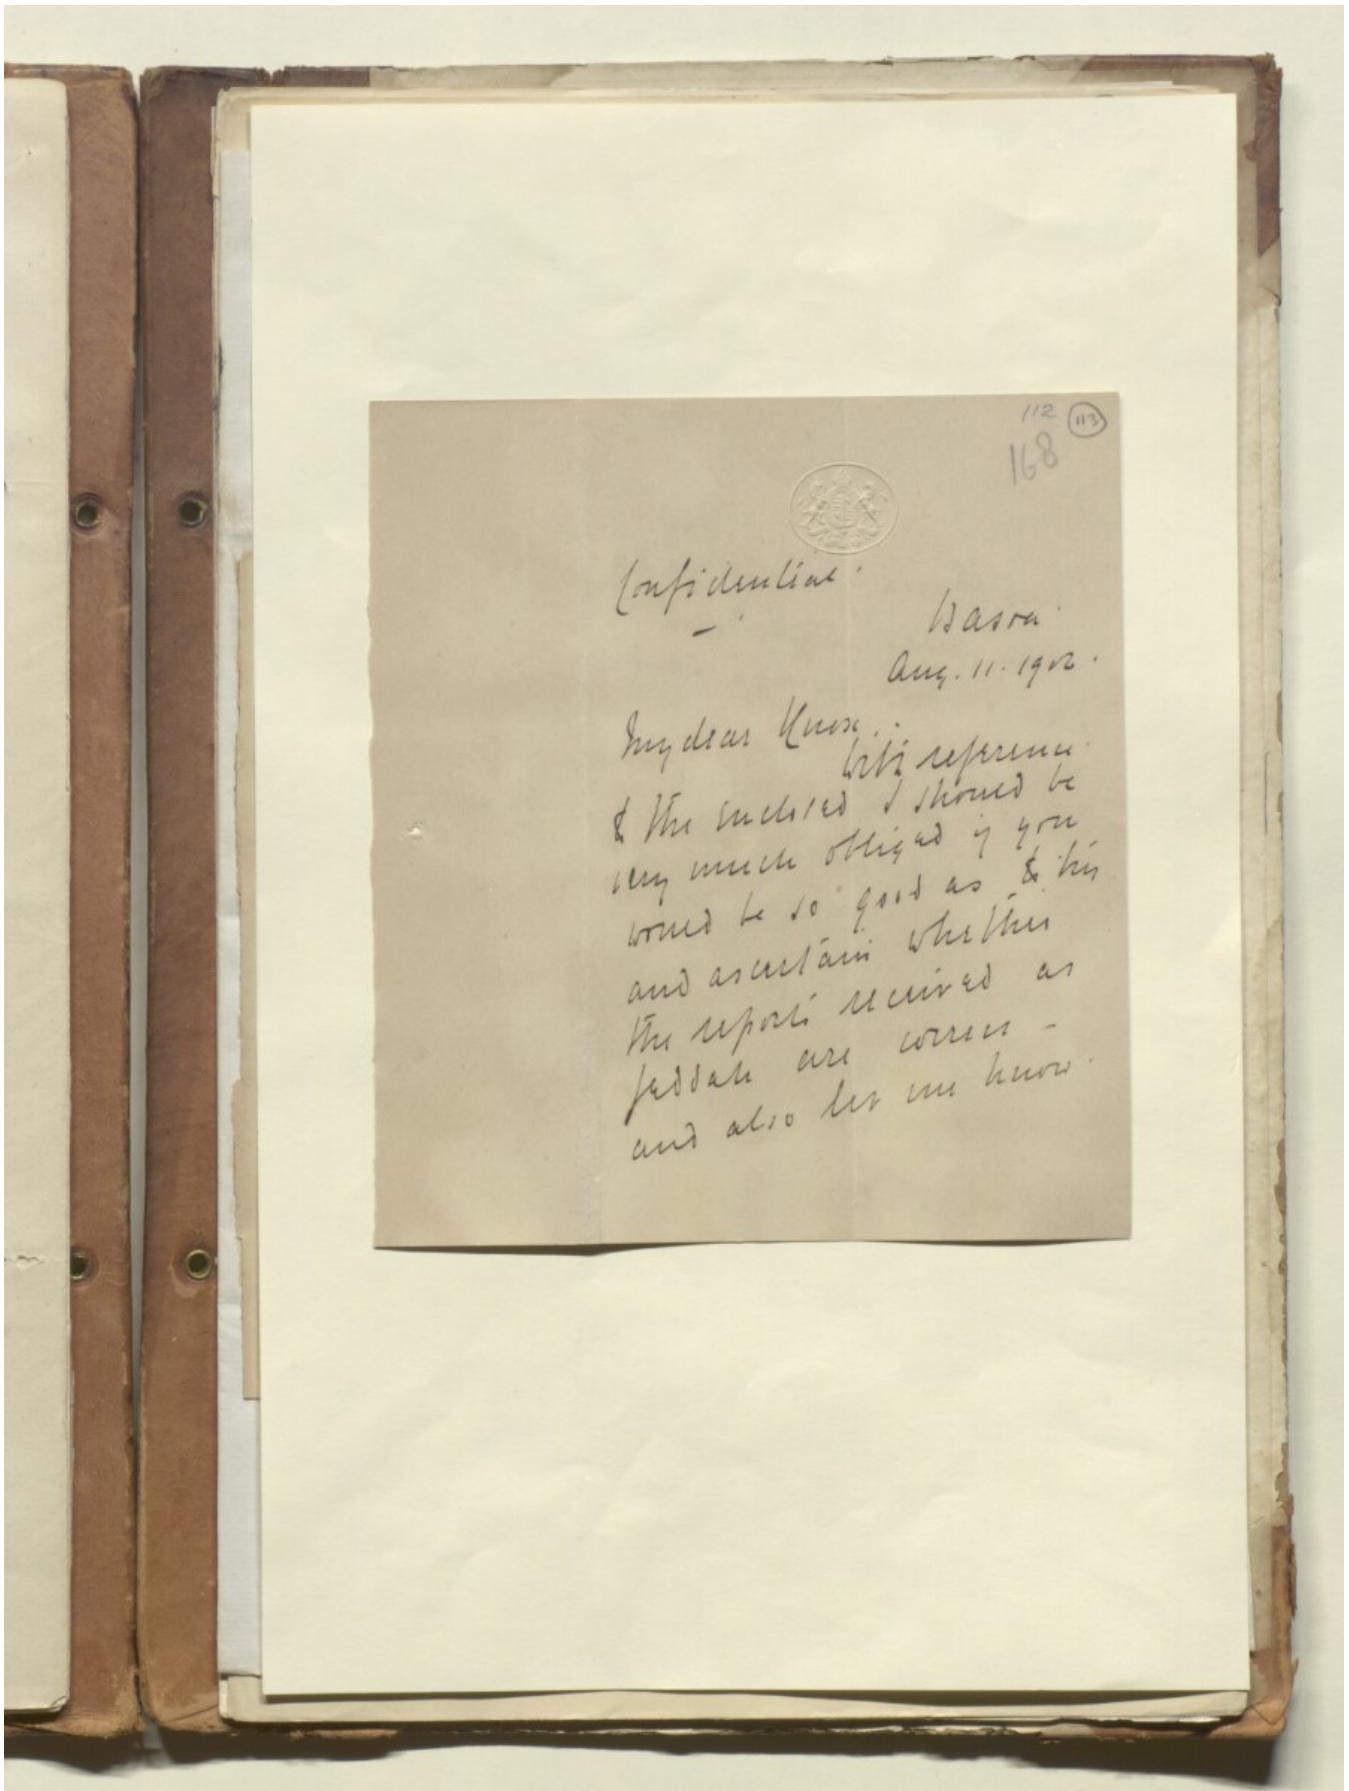 112 113
168
Confidential.
Basra.
Aug. 11. 1902.
My dear Knox.
With reference
to the enclosed I should be
very much obliged if you
would be so good as to try
and ascertain whether
the reports received at
Jeddah are correct -
and also let me know.